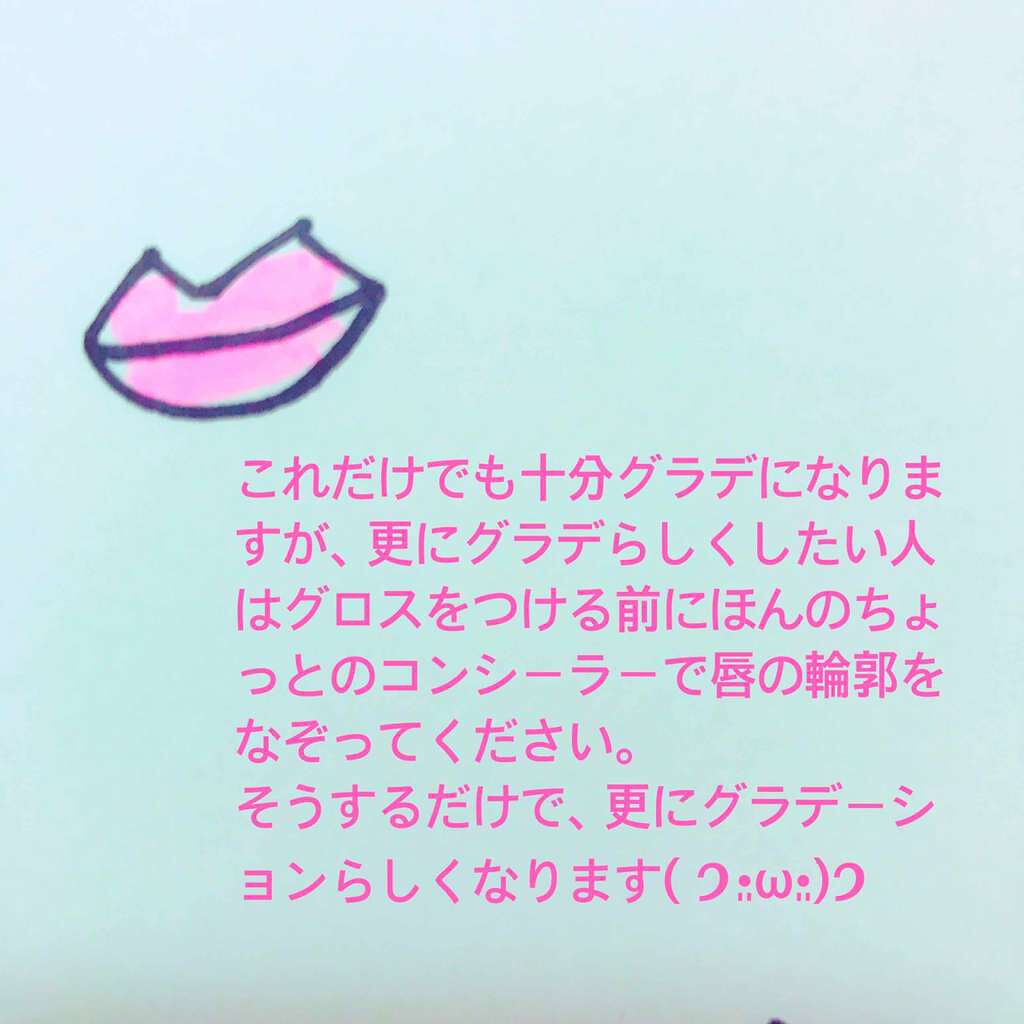 これだけでも十分グラデになりま
すが、更にグラデらしくしたい人
はグロスをつける前にほんのちょ
っとのコンシーラーで唇の輪郭を
なぞってください。
そうするだけで、更にグラデーシ
ョンらしくなります( Ɔ ҉ω ҉)Ɔ